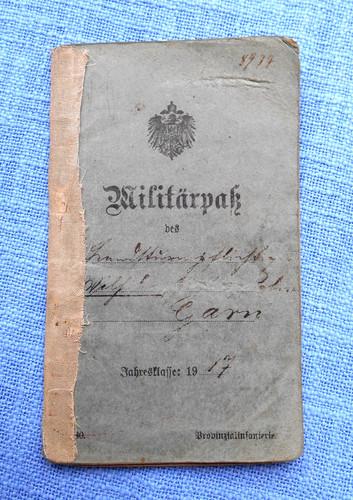 8914
Militärpaß
des
Landsturmpflicht
Garn
Jahresklasse: 1917
Provinzialinfanterie.